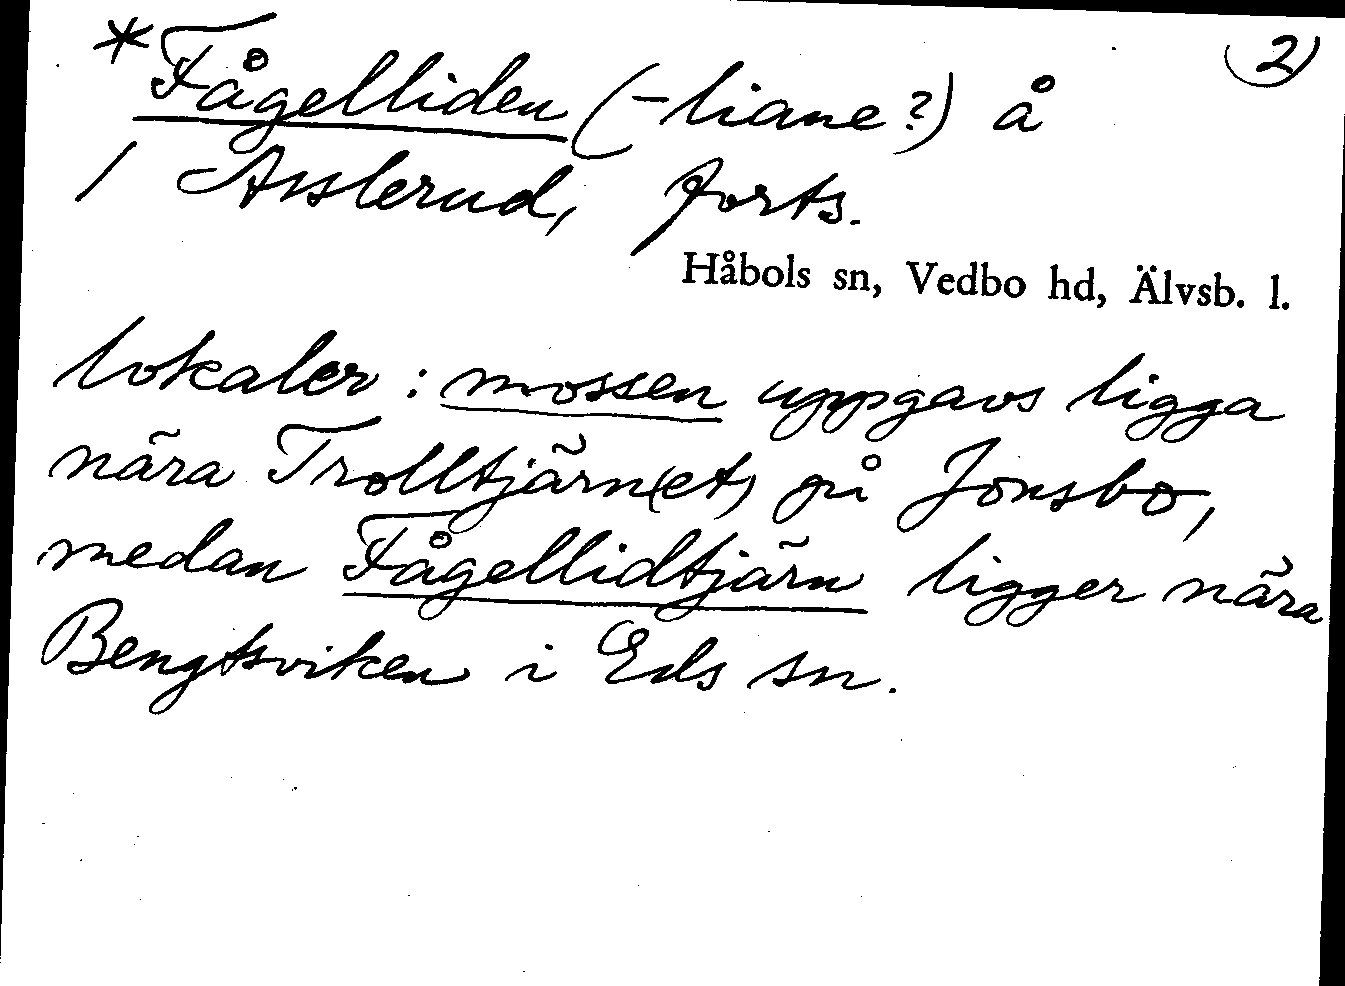 *Fågelliden (-liane?) å 2)
/ Asslerud, forts.
Håbols sn, Vedbo hd, Älvsb. l.
lokaler: mossen uppgavs ligga
nära Trolltjärn(et) på Jonsbo,
medan Fågellidtjärn ligger nära
Bengtsviken i Eds sn.